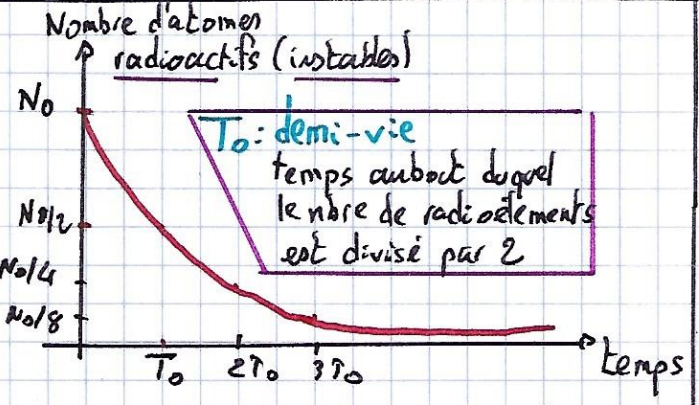 Nombre d'atomes
radioactifs (instables)
N0
T0 : demi-vie
temps au bout duquel
le nbre de radioéléments
est divisé par 2
N0/2
N0/4
N0/8
T0
2T0
3T0
temps